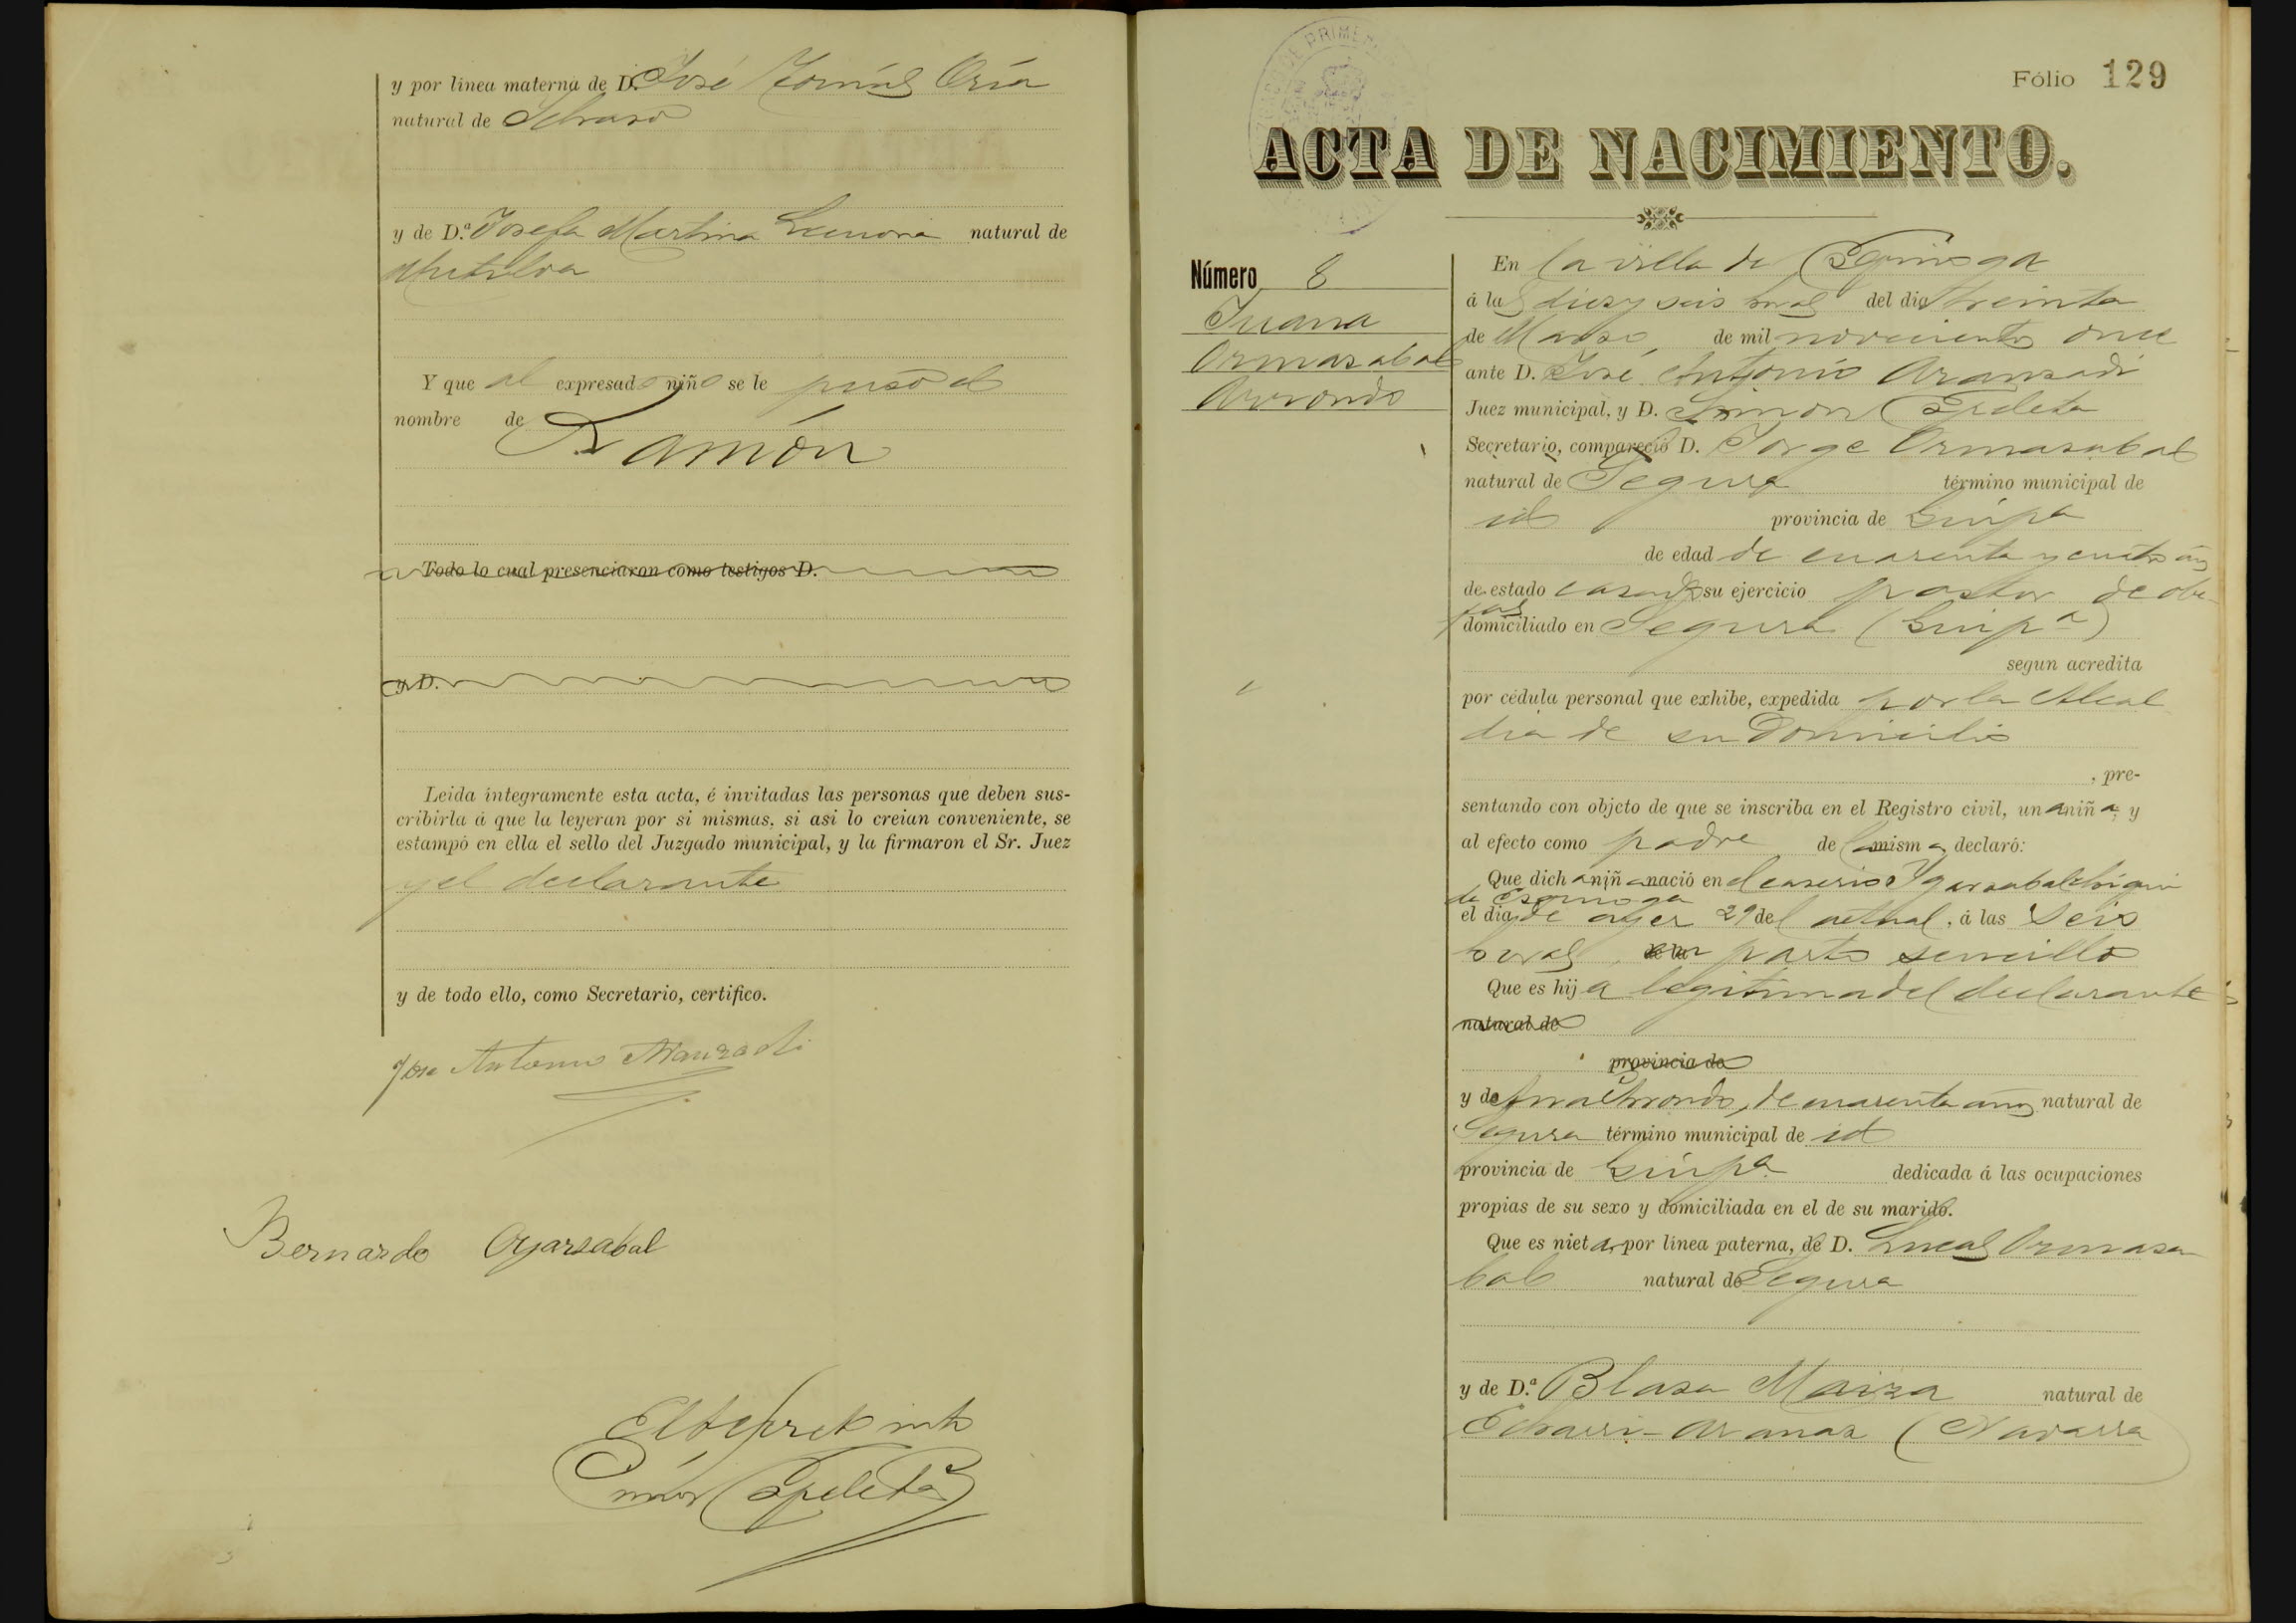 y por linea materna de D. José Tomás Oría
natural de
y de D.ª Josefa Martina Lecuona natural de
Mutiloa
Y que al expresado niño se le puso el
nombre de
Ramón
Todo lo cual presenciaron como testigos D.
y D.
Leida íntegramente esta acta, é invitadas las personas que deben sus-
cribirla á que la leyeran por si mismas, si asi lo creian conveniente, se
estampó en ella el sello del Juzgado municipal, y la firmaron el Sr. Juez
y el declarante
y de todo ello, como Secretario, certifico.
Jose Antonio Aranzadi
Bernardo Oyarzabal
Simón Ezpeleta
Fólio 129
ACTA DE NACIMIENTO.
Número 8
Juana
Ormazabal
Arrondo
En la villa de
á las diez y seis horas del dia treinta
de Marzo de mil novecientos once
ante D. José Antonio Aranzadi
Juez municipal, y D. Simón Ezpeleta
Secretario, compareció D. Jorge Ormazabal
natural de Segura término municipal de
id provincia de Guipª
de edad de cuarenta y cuatro añs
de estado casado su ejercicio pastor de ove-
jas
domiciliado en Segura (Guipª)
segun acredita
por cédula personal que exhibe, expedida por la Alcal
dia de su Domicilio
, pre-
sentando con objeto de que se inscriba en el Registro civil, una niña, y
al efecto como padre de la misma, declaró:
Que dicha niña nació en el caserio
de
el dia de ayer 29 del actual, á las seis
horas, parto sencillo
Que es hija legitima del declarante
natural de
provincia de
y de Ana Arrondo, de cuarenta años natural de
Segura término municipal de id
provincia de Guipª dedicada á las ocupaciones
propias de su sexo y domiciliada en el de su marido.
Que es nieta, por línea paterna, de D. Lucas Ormaza
bal natural de Segura
y de D.ª Blasa Maiza natural de
Echarri-Aranaz (Navarra